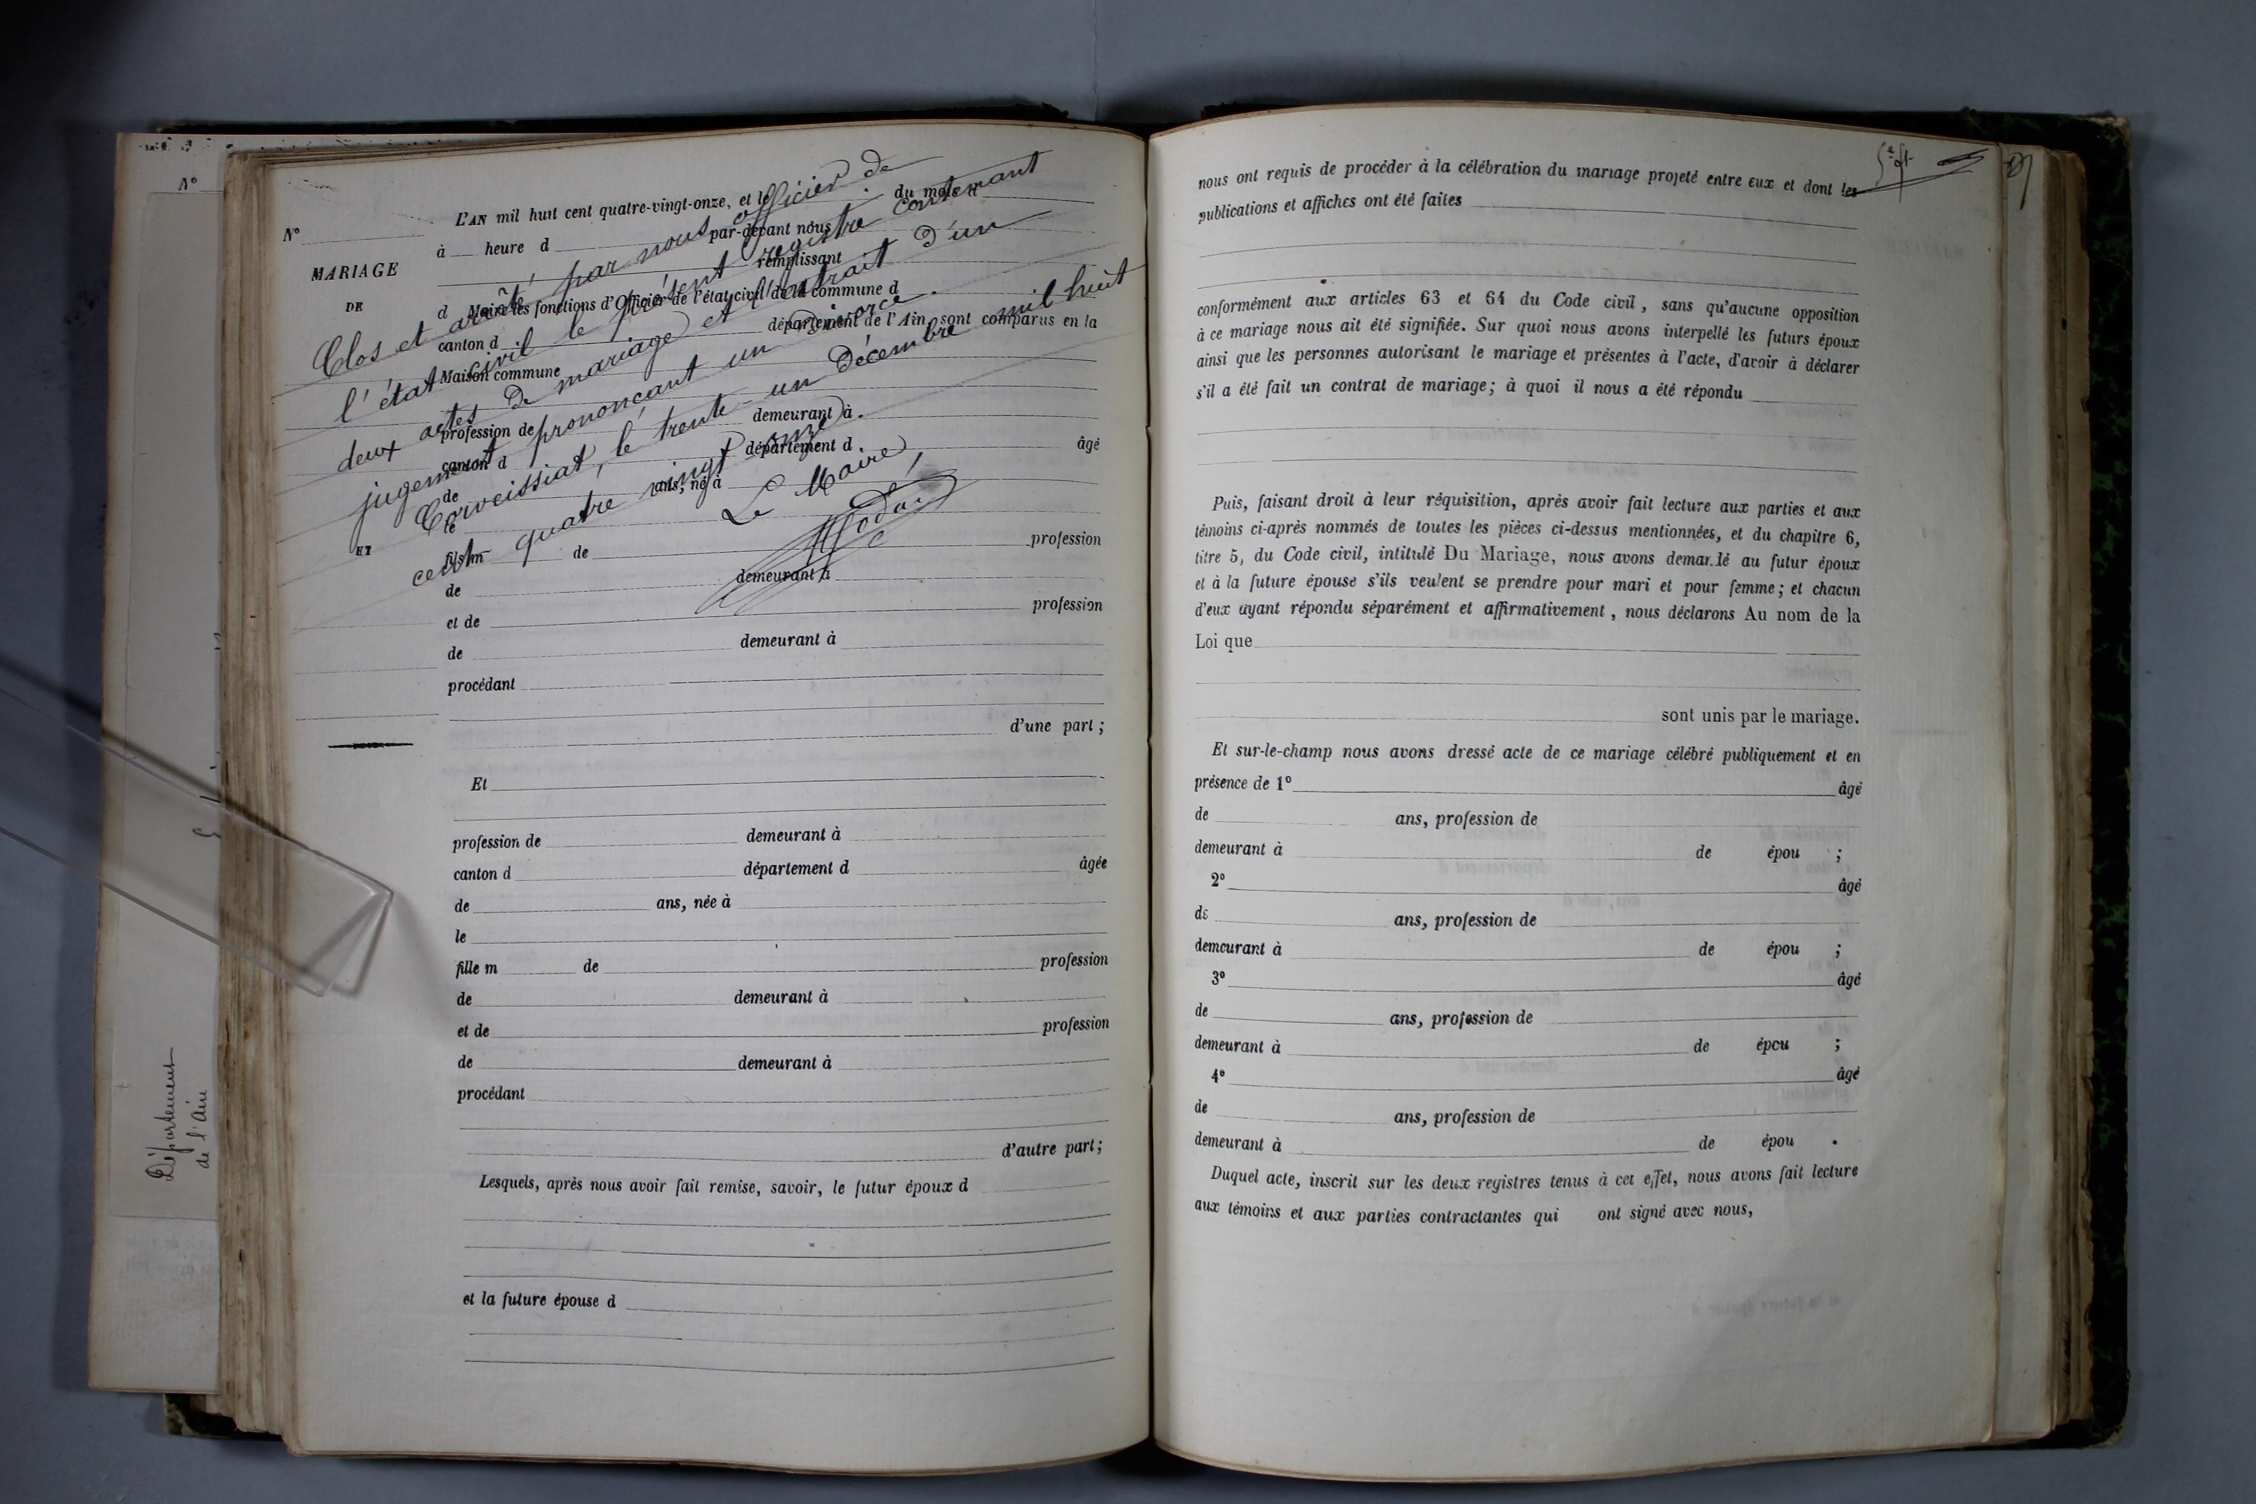 Nº
MARIAGE
DE
ET
L'AN mil huit cent quatre-vingt-onze, et le du mois d
à heure d par-devant nous
remplissant
d Maire les fonctions d'Officier de l'état civil de la commune d
canton d département de l'Ain, sont comparus en la
Maison commune
profession de demeurant à
canton d département d âgé
de ans, né à
le
fils m de profession
de demeurant à
et de profession
de demeurant à
procédant
d'une part ;
Clos et arrêté par nous officier de
l'état civil le présent registre contenant
deux actes de mariage et l'extrait d'un
jugement prononçant un divorce.
Corveissiat, le trente-un Décembre mil huit
cent quatre vingt onze.
Le Maire,
Et
profession de demeurant à
canton d département d âgée
de ans, née à
le
fille m de profession
de demeurant à
et de profession
de demeurant à
procédant
d'autre part ;
Lesquels, après nous avoir fait remise, savoir, le futur époux d
et la future épouse d
Nº
Département
de l'Ain
nous ont requis de procéder à la célébration du mariage projeté entre eux et dont les
publications et affiches ont été faites
conformément aux articles 63 et 64 du Code civil, sans qu'aucune opposition
à ce mariage nous ait été signifiée. Sur quoi nous avons interpellé les futurs époux
ainsi que les personnes autorisant le mariage et présentes à l'acte, d'avoir à déclarer
s'il a été fait un contrat de mariage; à quoi il nous a été répondu
Puis, faisant droit à leur réquisition, après avoir fait lecture aux parties et aux
témoins ci-après nommés de toutes les pièces ci-dessus mentionnées, et du chapitre 6,
titre 5, du Code civil, intitulé Du Mariage, nous avons demandé au futur époux
et à la future épouse s'ils veulent se prendre pour mari et pour femme; et chacun
d'eux ayant répondu séparément et affirmativement, nous déclarons Au nom de la
Loi que
sont unis par le mariage.
Et sur-le-champ nous avons dressé acte de ce mariage célébré publiquement et en
présence de 1º âgé
de ans, profession de
demeurant à de épou ;
2º âgé
de ans, profession de
demeurant à de épou ;
3º âgé
de ans, profession de
demeurant à de épou ;
4º âgé
de ans, profession de
demeurant à de épou .
Duquel acte, inscrit sur les deux registres tenus à cet effet, nous avons fait lecture
aux témoins et aux parties contractantes qui ont signé avec nous,